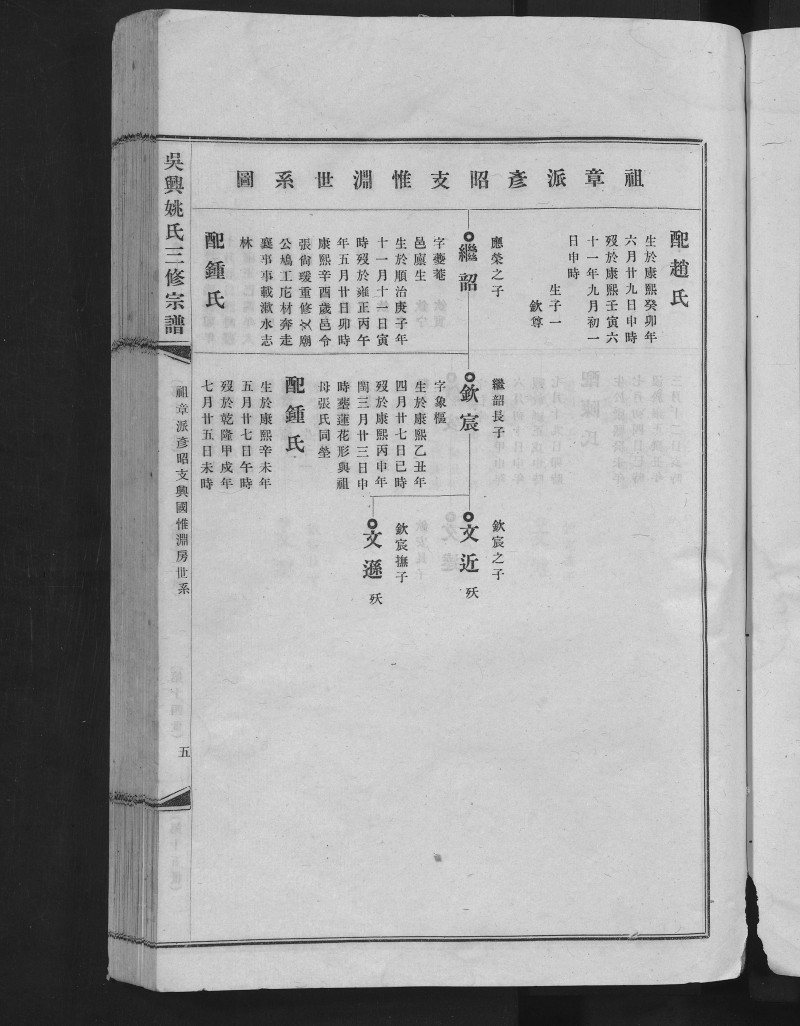 祖章派彥昭支惟淵世系圖
配趙氏
生於康熙癸卯年
六月廿九日申時
歿於康熙壬寅六
十一年九月初一
日申時
生子一
欽尊
應榮之子
繼韶
字虁菴
邑廩生
生於順治庚子年
十一月十一日寅
時歿於雍正丙午
年五月廿日卯時
康熙辛酉歲邑令
張尙瑗重修文廟
公鳩工庀材奔走
襄事事載漵水志
林
配鍾氏
繼韶長子
欽宸
字象樞
生於康熙乙丑年
四月廿七日巳時
歿於康熙丙申年
閏三月廿三日申
時塟蓮花形與祖
母張氏同塋
配鍾氏
生於康熙辛未年
五月廿七日午時
歿於乾隆甲戌年
七月廿五日未時
欽宸之子
文近 殀
欽宸撫子
文遜 殀
吳興姚氏三修宗譜
祖章派彥昭支興國惟淵房世系
五